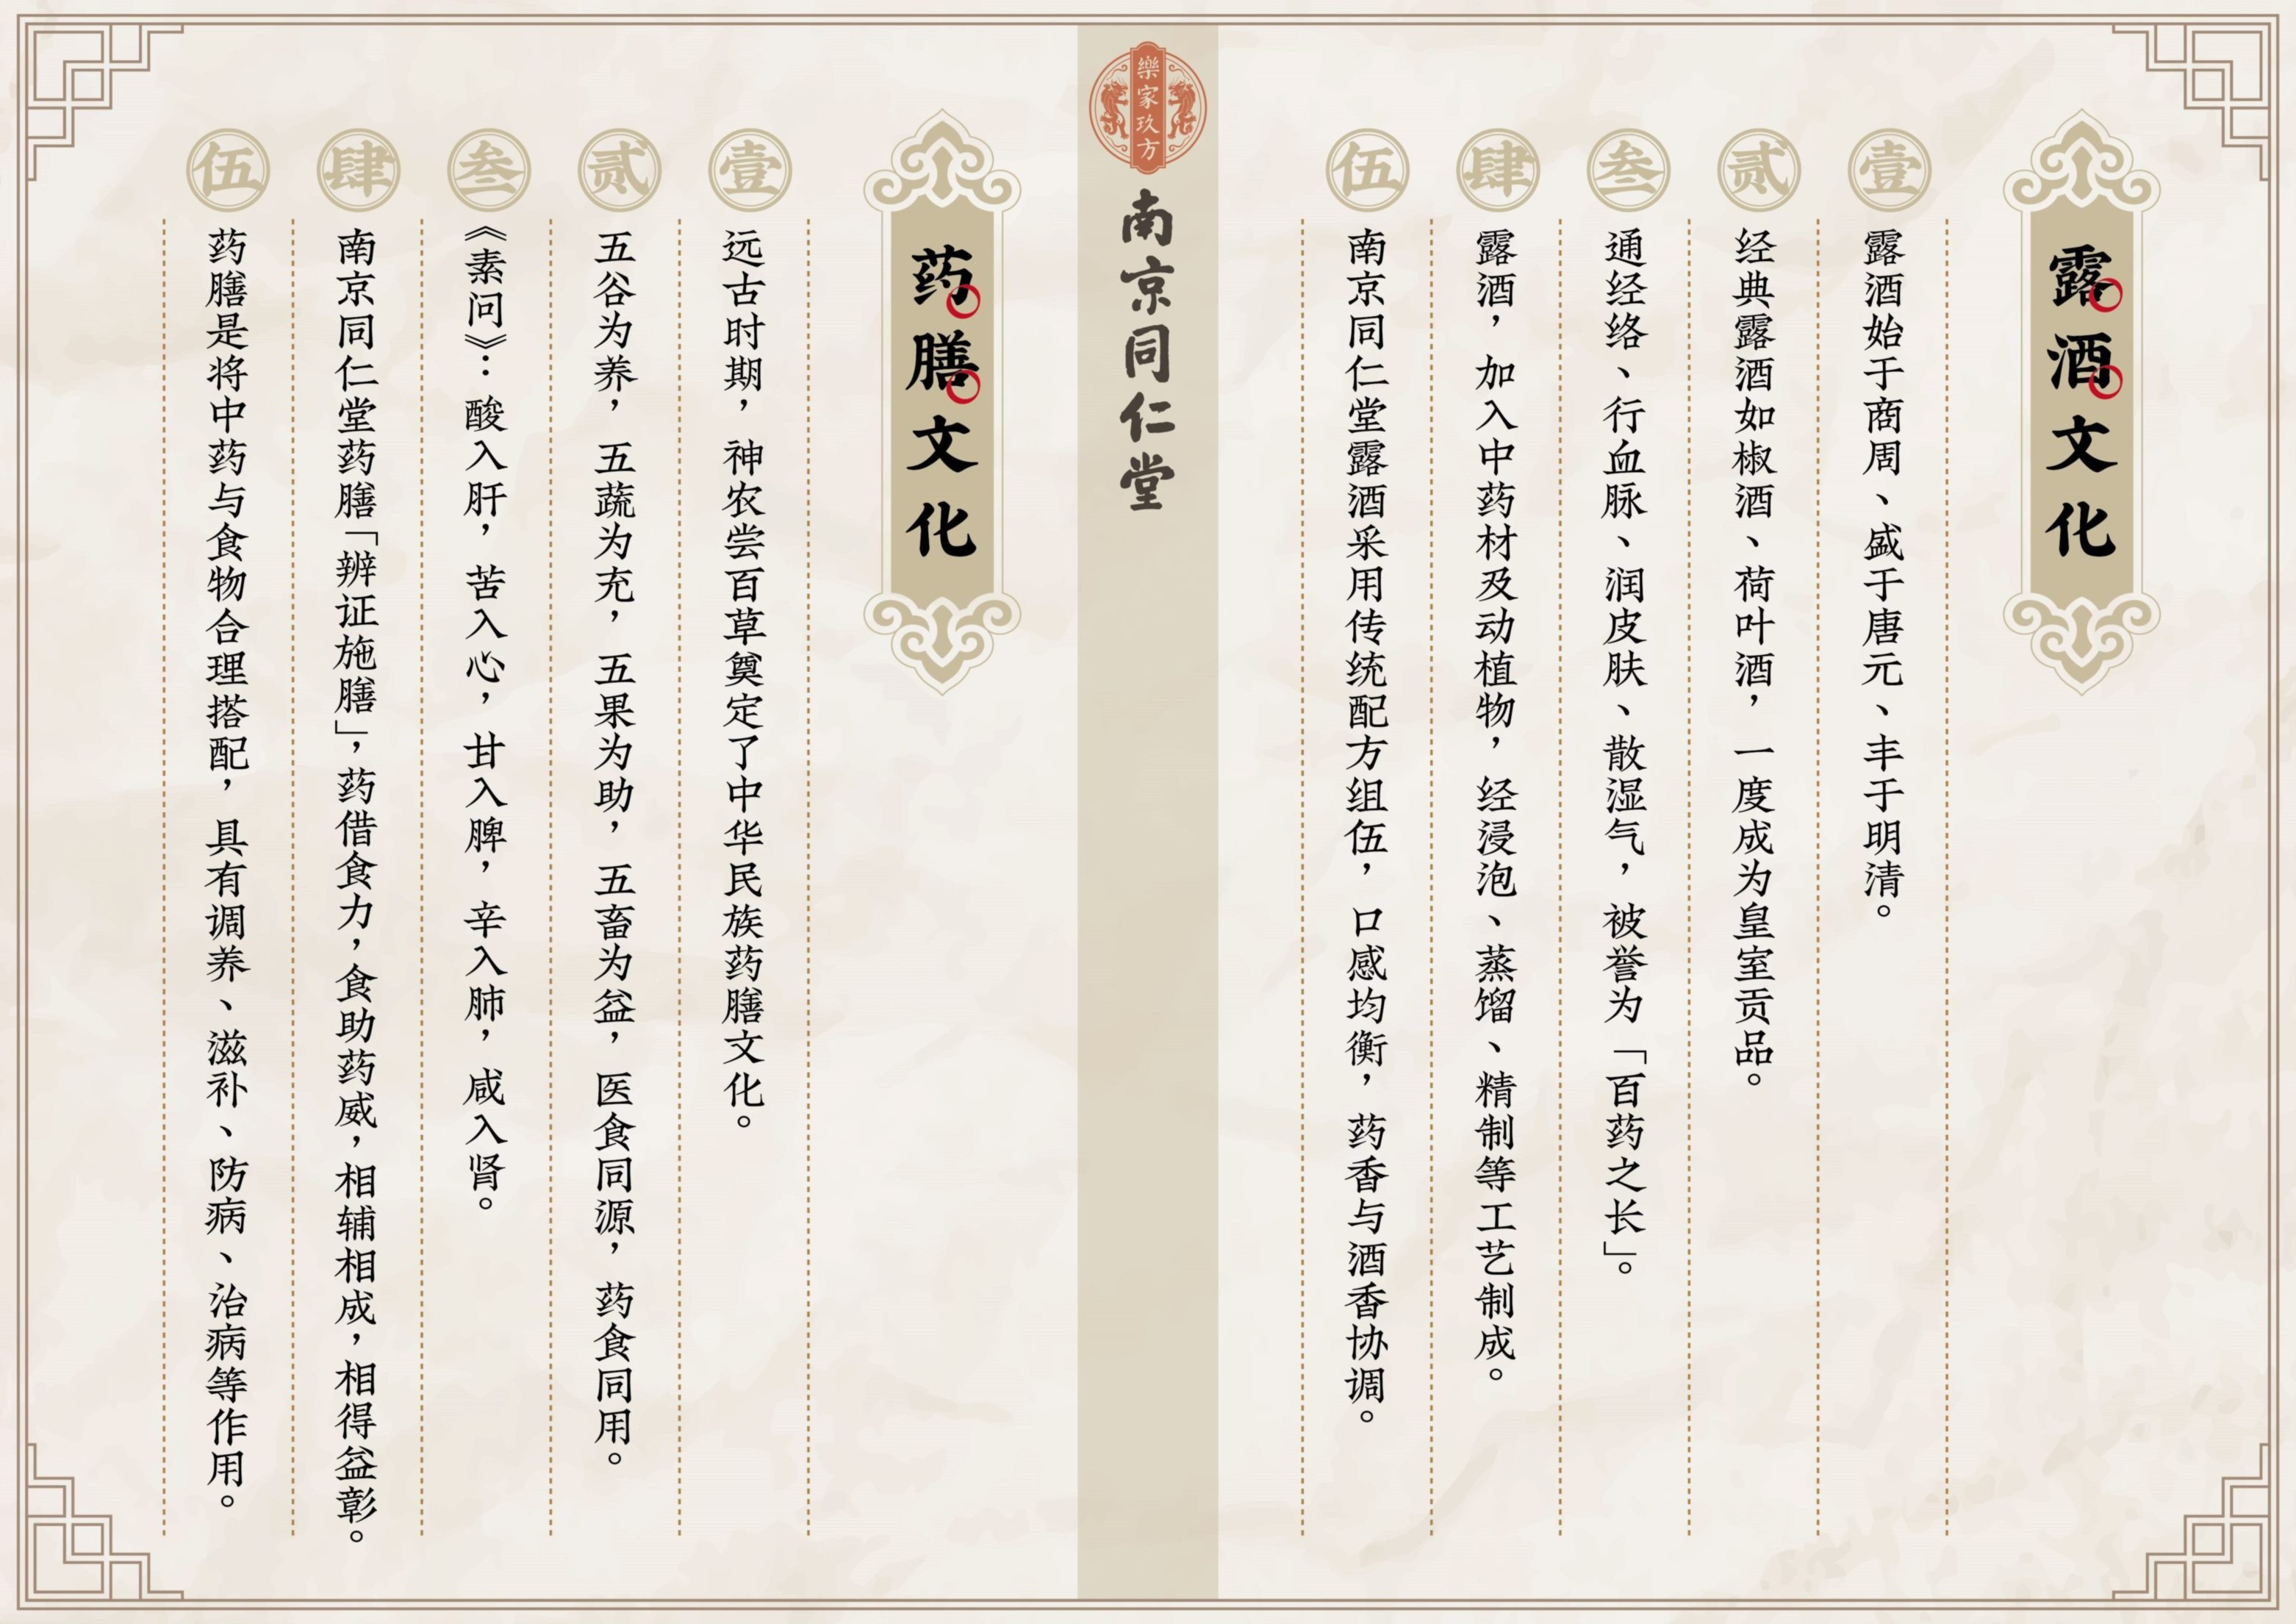 露酒文化
壹
露酒始于商周、盛于唐元、丰于明清。
贰
经典露酒如椒酒、荷叶酒，一度成为皇室贡品。
叁
通经络、行血脉、润皮肤、散湿气，被誉为「百药之长」。
肆
露酒，加入中药材及动植物，经浸泡、蒸馏、精制等工艺制成。
伍
南京同仁堂露酒采用传统配方组伍，口感均衡，药香与酒香协调。
樂家玖方
南京同仁堂
药膳文化
壹
远古时期，神农尝百草奠定了中华民族药膳文化。
贰
五谷为养，五蔬为充，五果为助，五畜为益，医食同源，药食同用。
叁
《素问》：酸入肝，苦入心，甘入脾，辛入肺，咸入肾。
肆
南京同仁堂药膳「辨证施膳」，药借食力，食助药威，相辅相成，相得益彰。
伍
药膳是将中药与食物合理搭配，具有调养、滋补、防病、治病等作用。